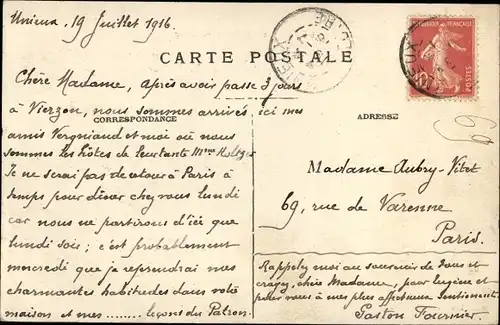 Unieux, 19 Juillet 1916
CARTE POSTALE
Chère Madame, après avoir passé 3 jours
à Vierzon, nous sommes arrivés ici mes
CORRESPONDANCE
ADRESSE
amis Vergniaud et moi où nous
sommes les hôtes de Mme Holtzer
Je ne serai pas de retour à Paris à
temps pour dîner chez vous lundi
car nous ne partirons d'ici que
lundi soir ; c'est probablement
mercredi que je reprendrai mes
charmantes habitudes dans votre
maison et mes ........ leçons du Patron.
Madame Aubry-Vitet
69, rue de Varenne
Paris.
Rappelez moi au souvenir de tous et
croyez, chère Madame, pour
pour vous à mes plus affectueux sentiments.
Gaston Fournier.
RÉPUBLIQUE FRANÇAISE
POSTES
UNIEUX
LOIRE